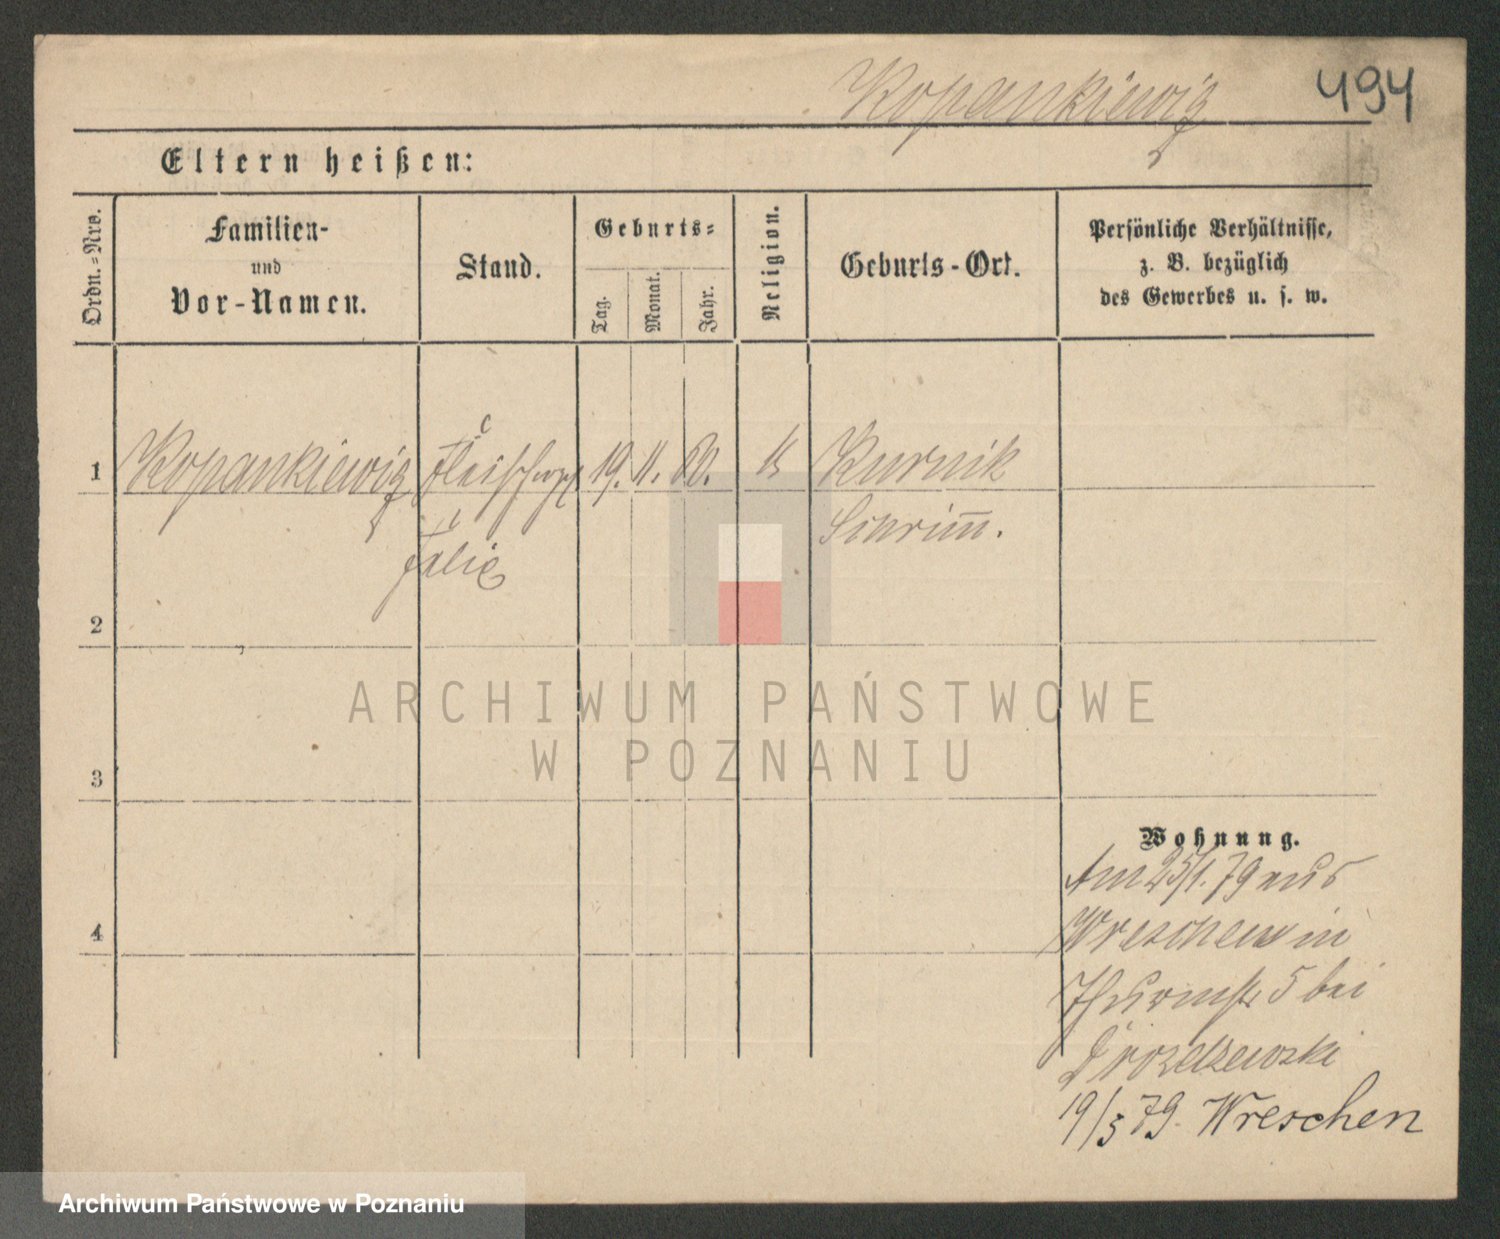 Kopankiewiz 494
Eltern heißen:
Ordn.-Nro.
Familien-
und
Vor-Namen.
Stand.
Geburts-
Tag.
Monat.
Jahr.
Religion.
Geburts-Ort.
Persönliche Verhältnisse,
z. B. bezüglich
des Gewerbes u. s. w.
1 Kopankiewiz 19. 11. 60. Kurnik
Schrimm.
Felix
2
3
4
Wohnung.
Am 25/1. 79 aus
Wreschen in
Thurmstr 5 bei
Drozdzewski
19/3 79. Wreschen
ARCHIWUM PAŃSTWOWE
W POZNANIU
Archiwum Państwowe w Poznaniu